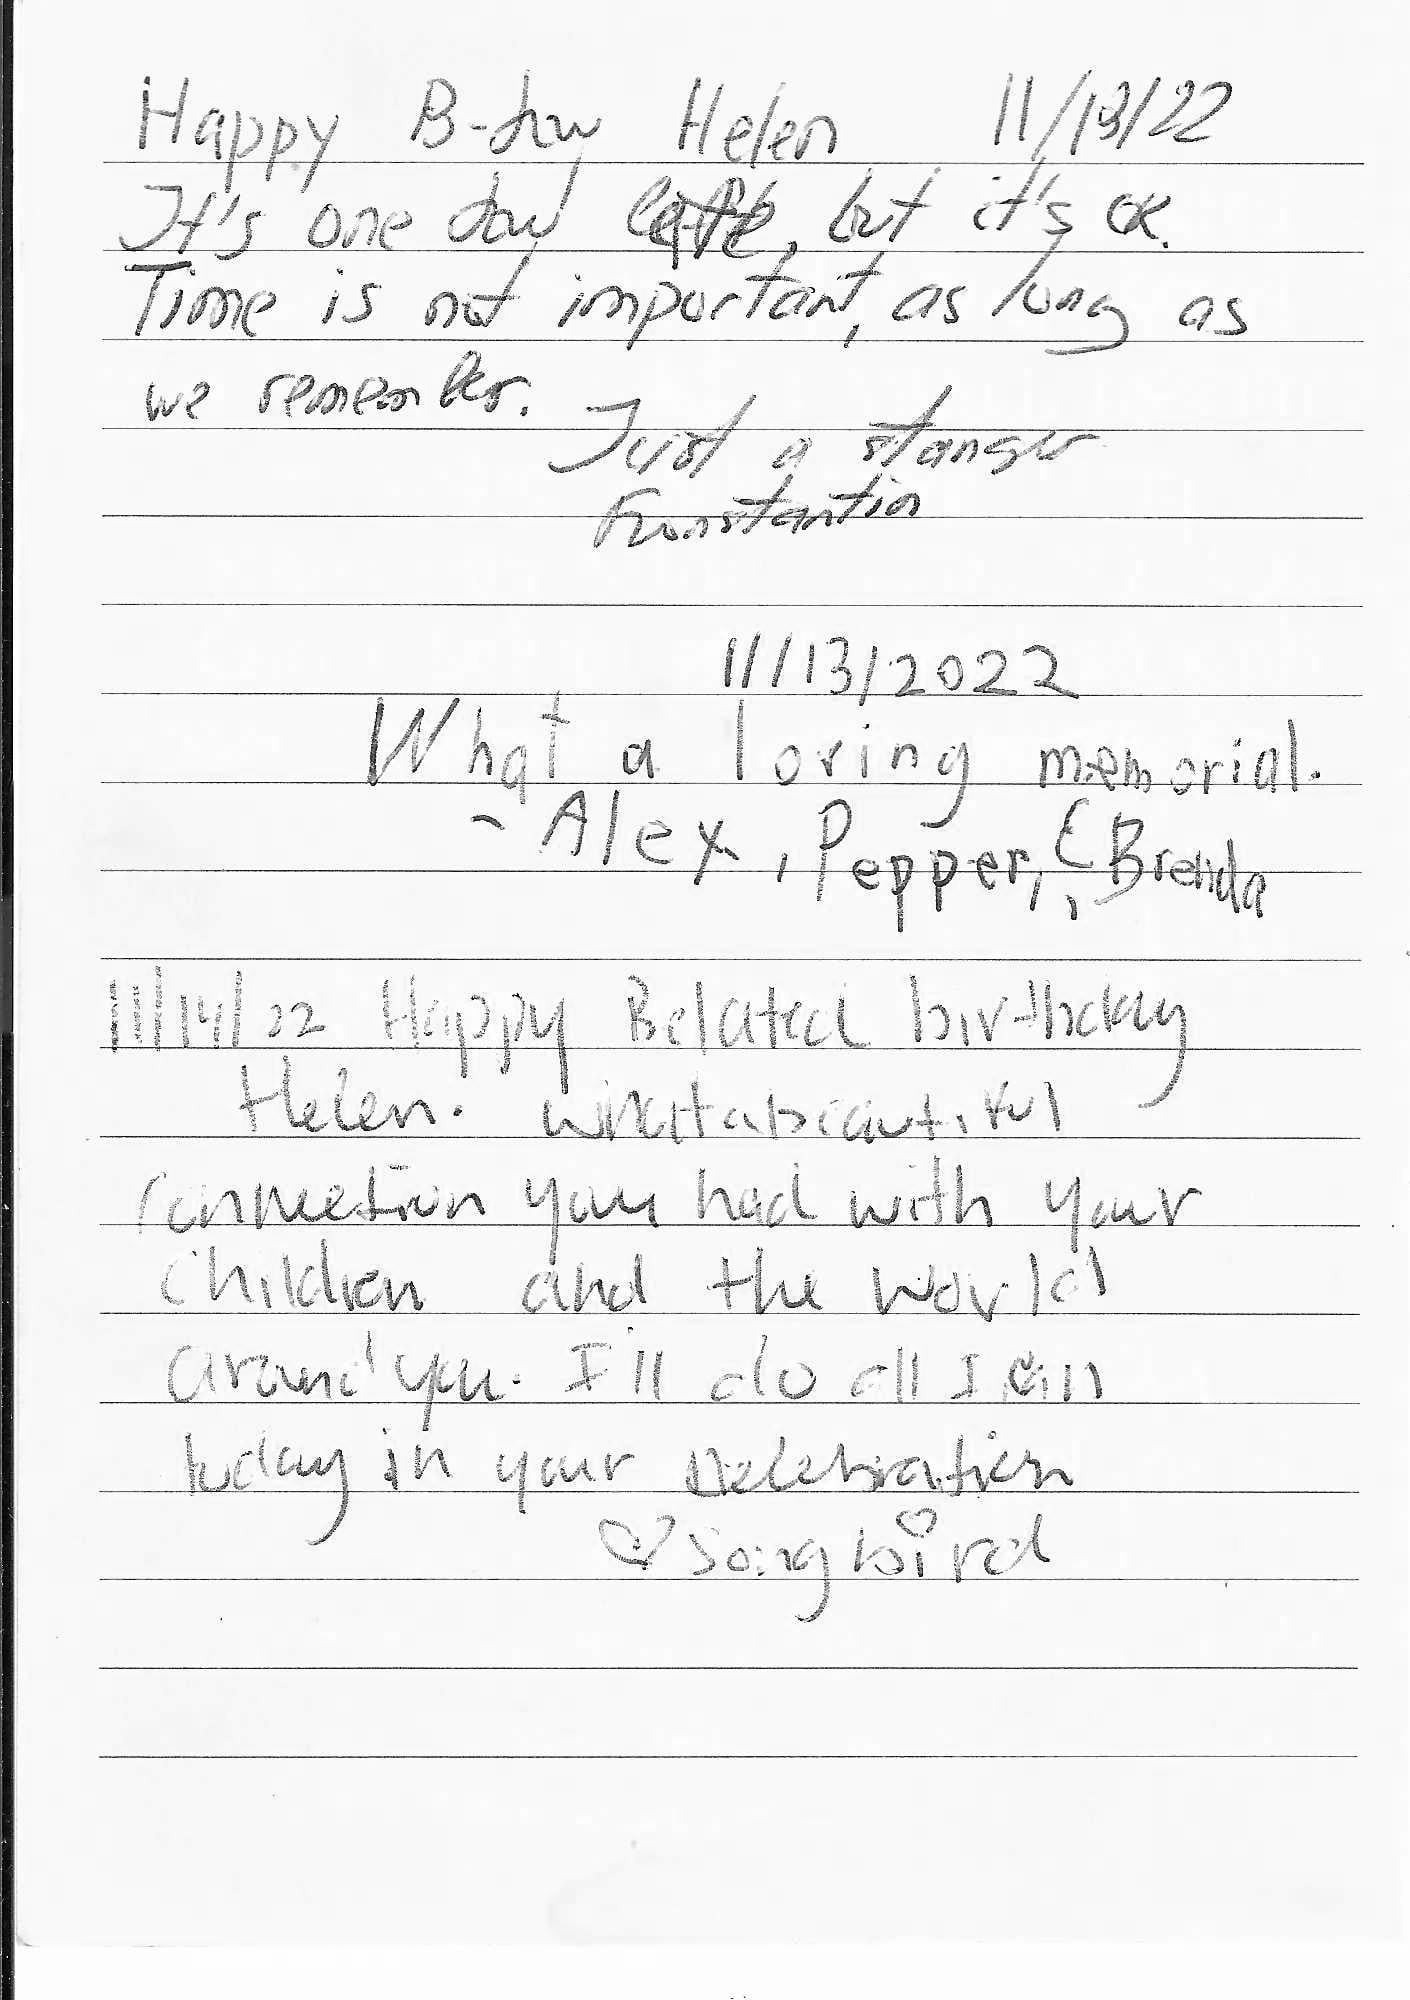 Happy B-day Helen 11/13/22
It's one day late, but it's ok.
Time is not important, as long as
we remember.
Just a stanger
Konstantin
11/13/2022
What a loving memorial.
- Alex, Pepper, & Brenda
11/14/22 Happy Belated birthday
Helen. What a beautiful
connection you had with your
children and the world
around you. I'll do all I can
today in your celebration
♡ Songbird